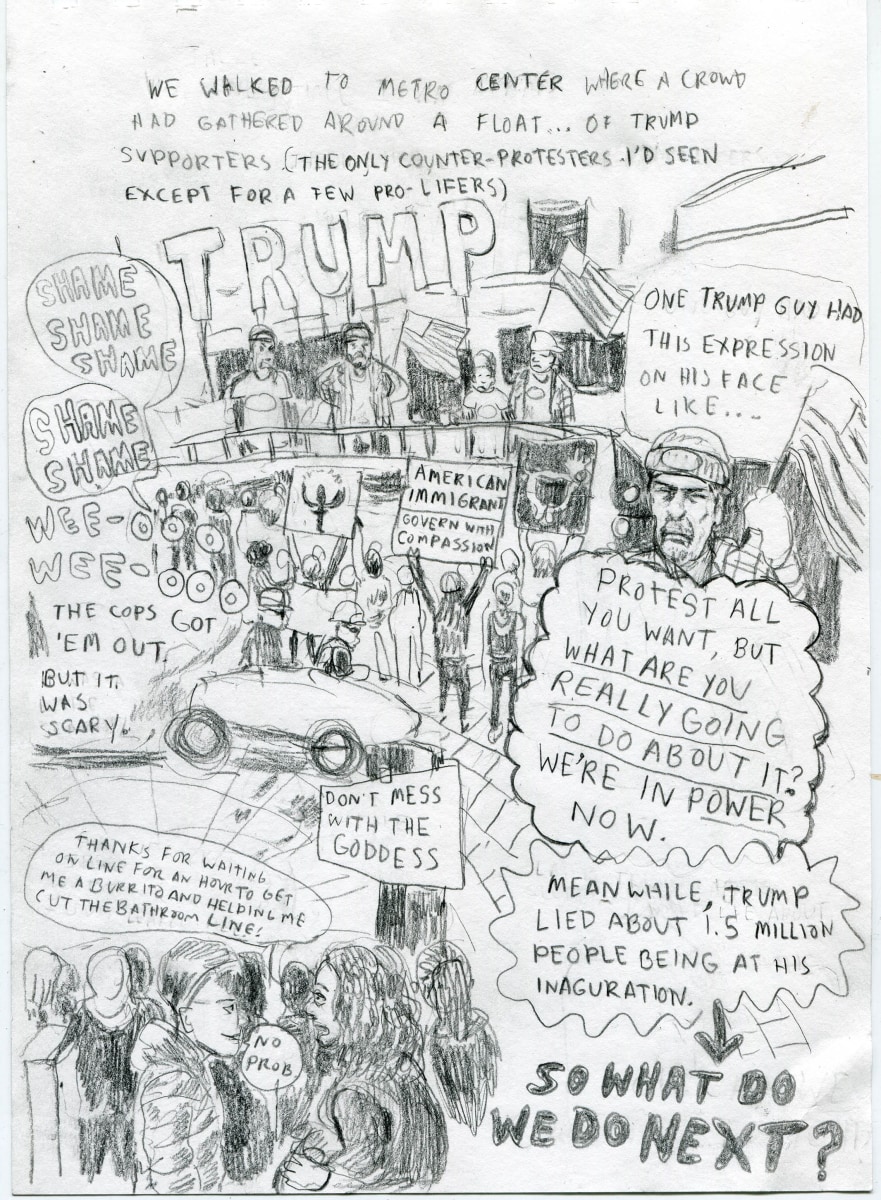 WE WALKED TO METRO CENTER WHERE A CROWD
HAD GATHERED AROUND A FLOAT... OF TRUMP
SUPPORTERS. (THE ONLY COUNTER-PROTESTERS I'D SEEN
EXCEPT FOR A FEW PRO-LIFERS)
TRUMP
SHAME
SHAME
SHAME
SHAME
SHAME
ONE TRUMP GUY HAD
THIS EXPRESSION
ON HIS FACE
LIKE....
AMERICAN
IMMIGRANT
GOVERN WITH
COMPASSION
WEE-O
WEE-OO
THE COPS GOT
'EM OUT.
BUT IT
WAS
SCARY.
PROTEST ALL
YOU WANT, BUT
WHAT ARE YOU
REALLY GOING
TO DO ABOUT IT?
WE'RE IN POWER
NOW.
DON'T MESS
WITH THE
GODDESS
THANKS FOR WAITING
ON LINE FOR AN HOUR TO GET
ME A BURRITO AND HELPING ME
CUT THE BATHROOM LINE!
NO
PROB
MEANWHILE, TRUMP
LIED ABOUT 1.5 MILLION
PEOPLE BEING AT HIS
INAGURATION.
SO WHAT DO
WE DO NEXT?